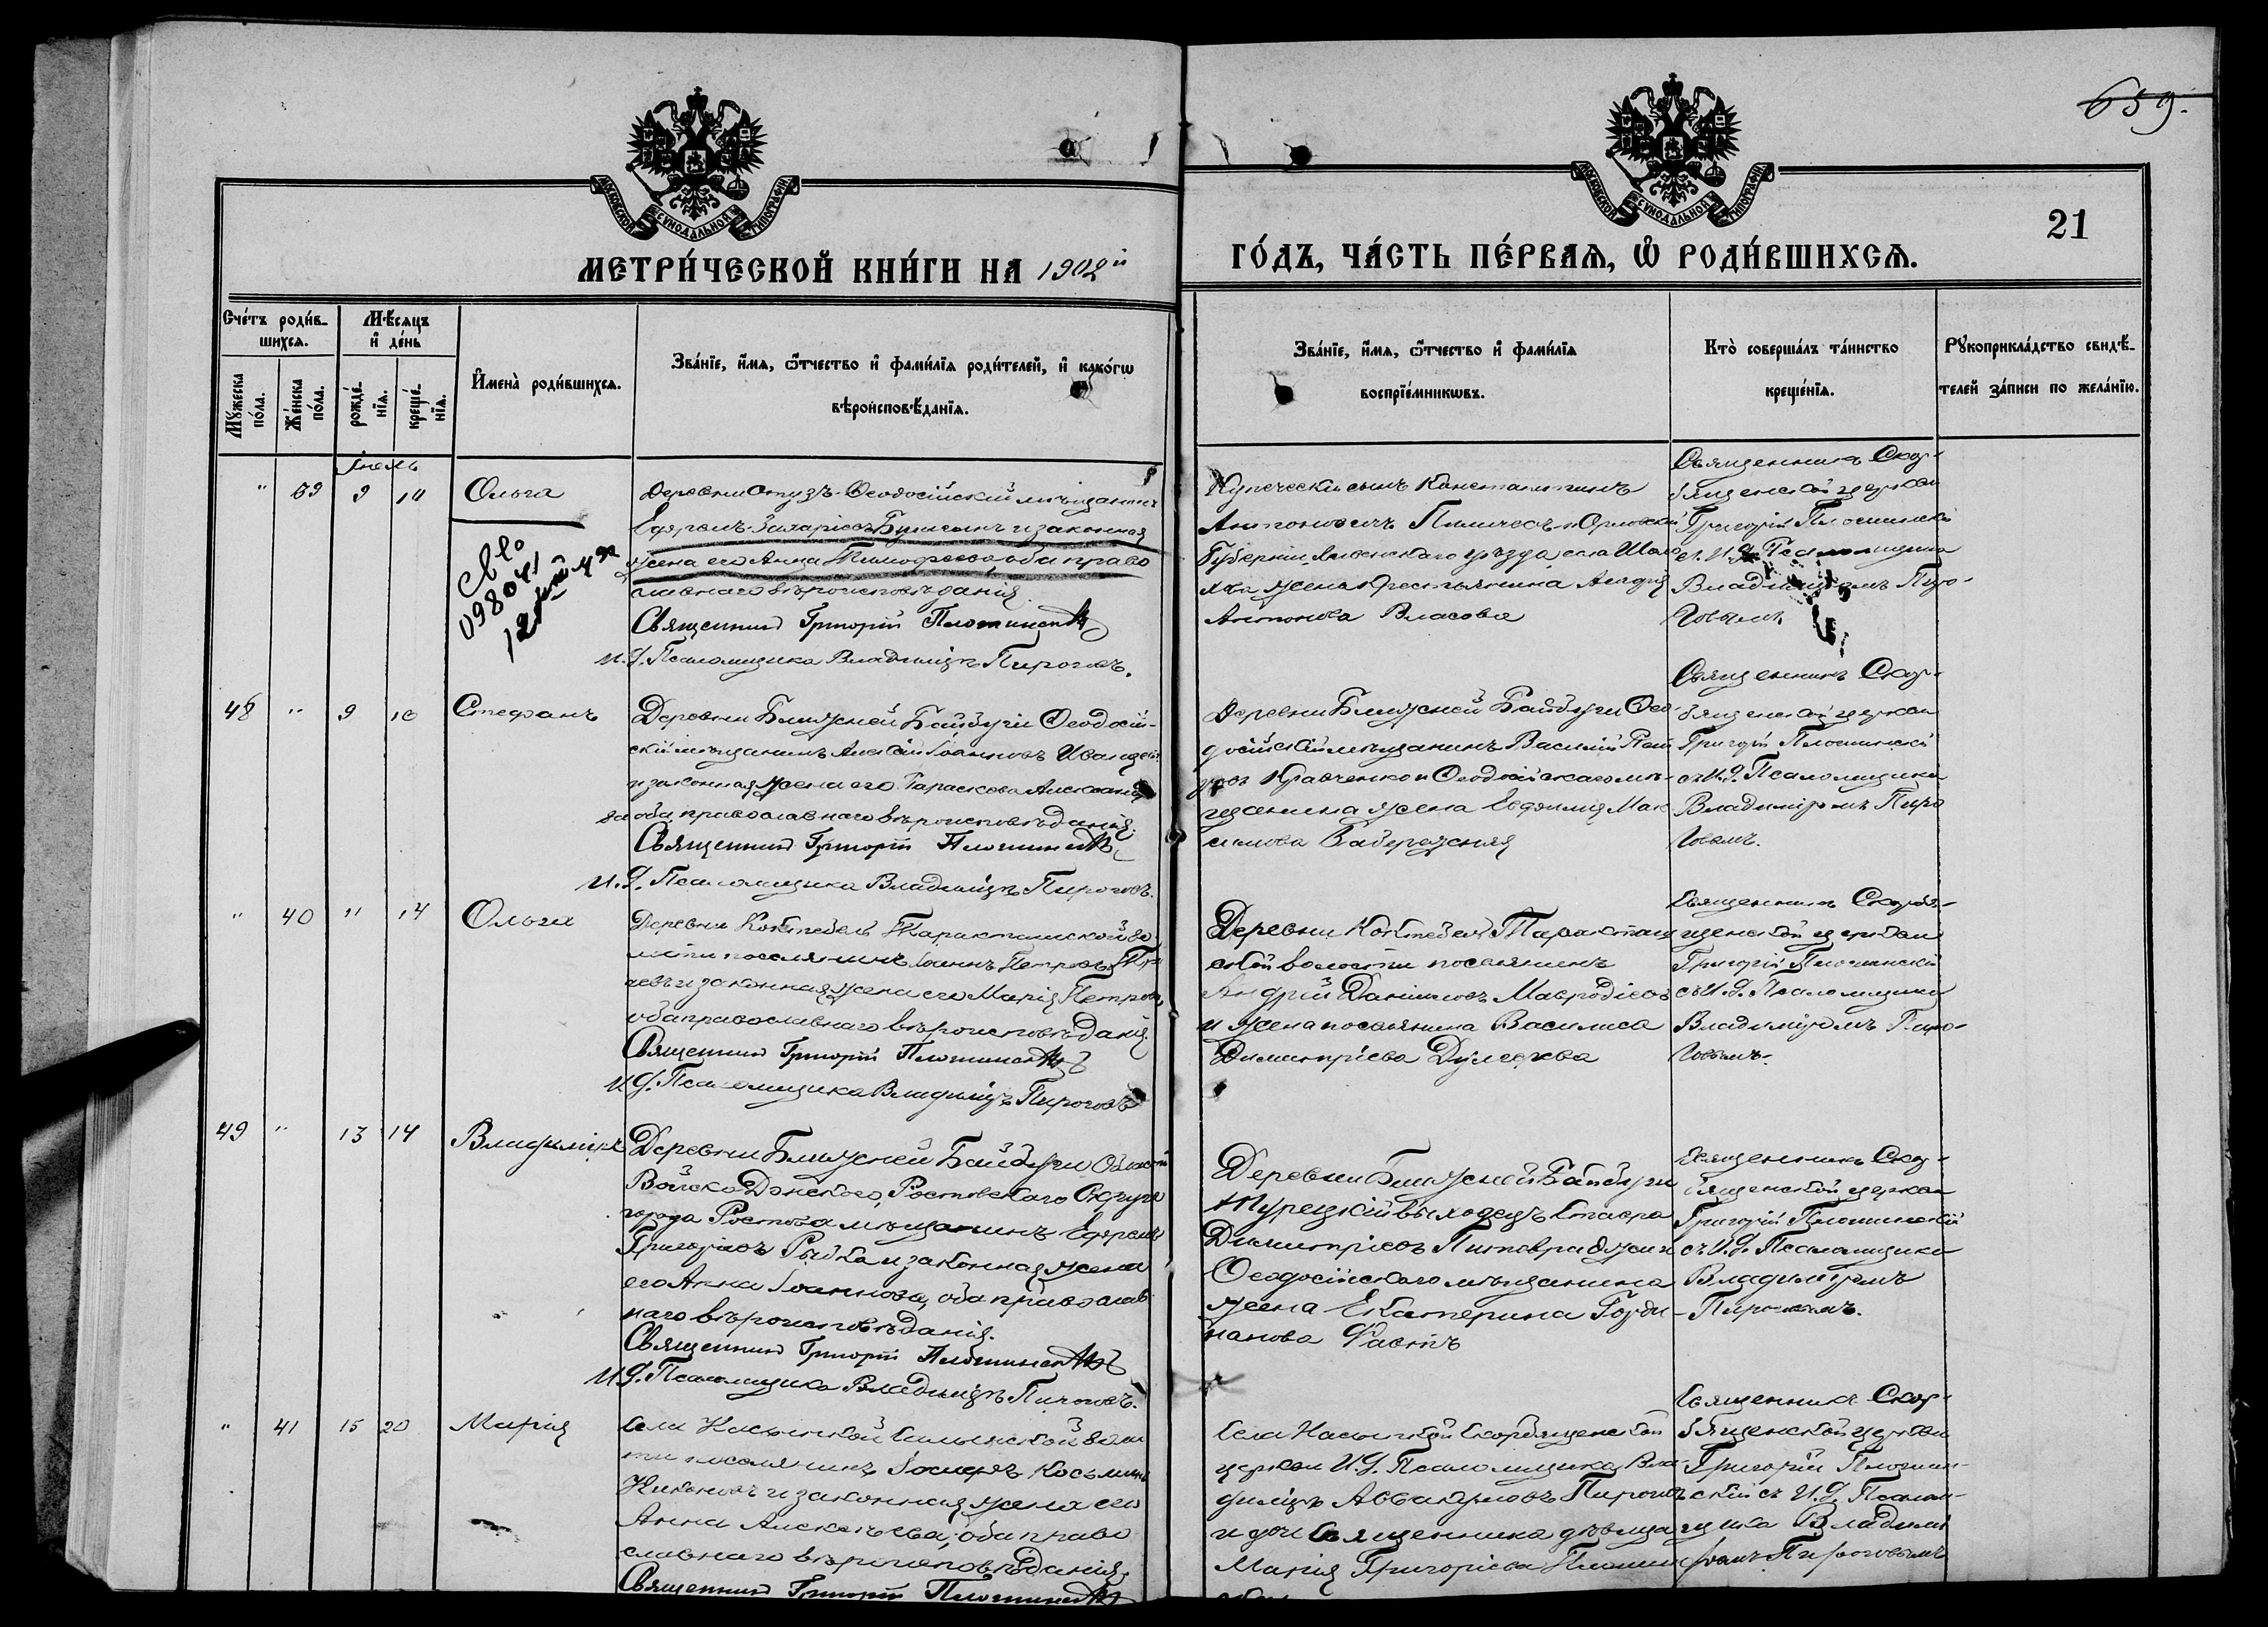 659.
МОСКОВСКОЙ СѴНОДАЛЬНОЙ ТИПОГРАФІИ
МОСКОВСКОЙ СѴНОДАЛЬНОЙ ТИПОГРАФІИ
21
МЕТРИ́ЧЕСКОЙ КНИ́ГИ НА 1902й
ГО́ДЪ, ЧА́СТЬ ПЕ́РВАѦ, Ѡ҆ РОДИ́ВШИХСѦ.
Сче́тъ роди́в-
шихсѧ.
Мꙋ́жеска
по́ла.
Же́нска
по́ла.
Мѣ́сѧцъ
и҆ де́нь
рожде́-
нїѧ.
креще́-
нїѧ.
И҆мена̀ роди́вшихсѧ.
Зва́нїе, и҆́мѧ, ѻ҆́тчество и҆ фами́лїѧ роди́телей, и҆ како́гѡ
вѣроисповѣ́данїѧ.
Зва́нїе, и҆́мѧ, ѻ҆́тчество и҆ фами́лїѧ
воспрїе́мникѡвъ.
Кто̀ соверша́лъ та́инство
креще́нїѧ.
Рꙋкоприкла́дство свидѣ́-
телей за́писи по жела́нїю.
Іюль
" 39 9 10 Ольга
Деревни Отузъ Ѳеодосійскій мѣщанинъ
Ефремъ Захаріевъ и законная
жена его Анна Тимофеева, оба право
славнаго вѣроисповѣданія.
Священник Григорій Плотинскій
И.Д. Псаломщика Владиміръ Пироговъ.
Св-во
098041
Купеческій сынъ Константинъ
Антоновичъ и Орловской
Губерніи, уѣзда, села
жена крестьянина
Антонова Власова
Священникъ Скор-
бященской церкви
Григорій Плотинскій
съ И.Д. Псаломщика
Владиміромъ Пиро-
говымъ.
48 " 9 10 Стефанъ
Деревни Ближней Байбуги Ѳеодосій-
скій мѣщанинъ Алексій Іоанновъ
и законная жена его Параскева
оба православнаго вѣроисповѣданія.
Священник Григорій Плотинскій
И.Д. Псаломщика Владиміръ Пироговъ.
Деревни Ближней Байбуги Ѳео-
досійскій мѣщанинъ Василій
Кравченко и Ѳеодосійскаго мѣ-
щанина жена Евфимія Мак-
симова Забережная
Священникъ Скор-
бященской церкви
Григорій Плотинскій
съ И.Д. Псаломщика
Владиміромъ Пиро
говымъ.
" 40 11 14 Ольга
Деревни Коктебель Таракташской во-
лости поселянинъ Іоаннъ Петровъ
и законная жена его Марія Петрова,
оба православнаго вѣроисповѣданія.
Священник Григорій Плотинскій
И.Д. Псаломщика Владиміръ Пироговъ
Деревни Коктебель Таракташ
ской волости поселянинъ
Андрій Даніиловъ Мавродіевъ
и жена поселянина Василиса
Димитріева
Священникъ Скорбя-
щенской церкви
Григорій Плотинскій
съ И.Д. Псаломщика
Владиміромъ Пиро-
говымъ.
49 " 13 14 Владиміръ
Деревни Ближней Байбуги Области
Войска Донского, Ростовскаго Округа
города Ростова мѣщанинъ Ефремъ
Григоріевъ Рыбка и законная жена
его Анна Іоаннова, оба православ-
наго вѣроисповѣданія.
Священник Григорій Плотинскій
И.Д. Псаломщика Владиміръ Пироговъ.
Деревни Ближней Байбуги
Турецкій выходецъ Ставра
Димитріевъ и
Ѳеодосійскаго мѣщанина
жена Екатерина
Священникъ Скор-
бященской церкви
Григорій Плотинскій
съ И.Д. Псаломщика
Владиміромъ
Пироговымъ.
" 41 15 20 Марія
Села Насыпкой Салынской воло
сти поселянинъ Іосифъ Косьминъ
и законная жена его
Анна Алексѣева, оба право
славнаго вѣроисповѣданія.
Священник Григорій Плотинскій
Села Насыпкой Скорбященской
церкви И.Д. Псаломщика Вла-
диміръ Аввакумовъ Пироговъ
и дочь Священника дѣвица
Марія Григоріева Плотин
Священникъ Скор-
бященской церкви
Григорій Плотин-
скій съ И.Д. Псалом-
щика Владимі
ромъ Пироговымъ